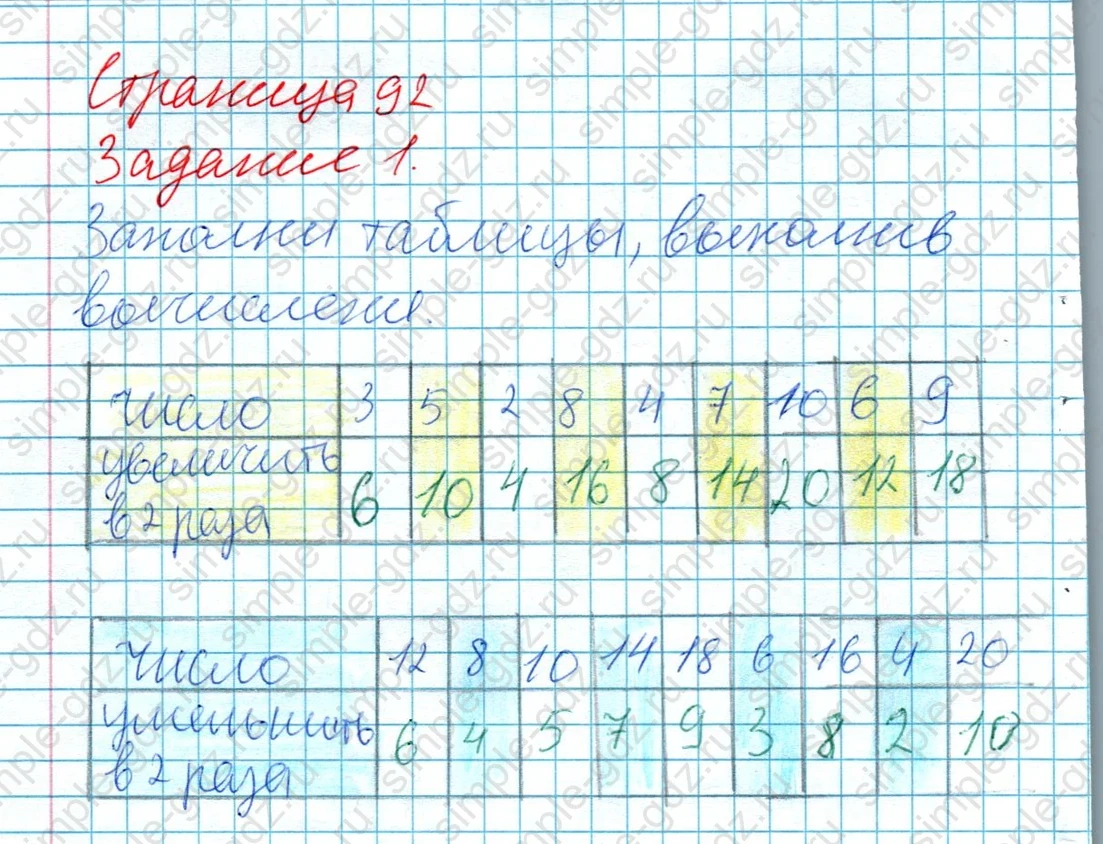 Страница 92
Задание 1.
Заполни таблицы, выполнив
вычисления.
число 3 5 2 8 4 7 10 6 9
увеличить
в 2 раза 6 10 4 16 8 14 20 12 18
число 12 8 10 14 18 6 16 4 20
уменьшить
в 2 раза 6 4 5 7 9 3 8 2 10
simple-gdz.ru